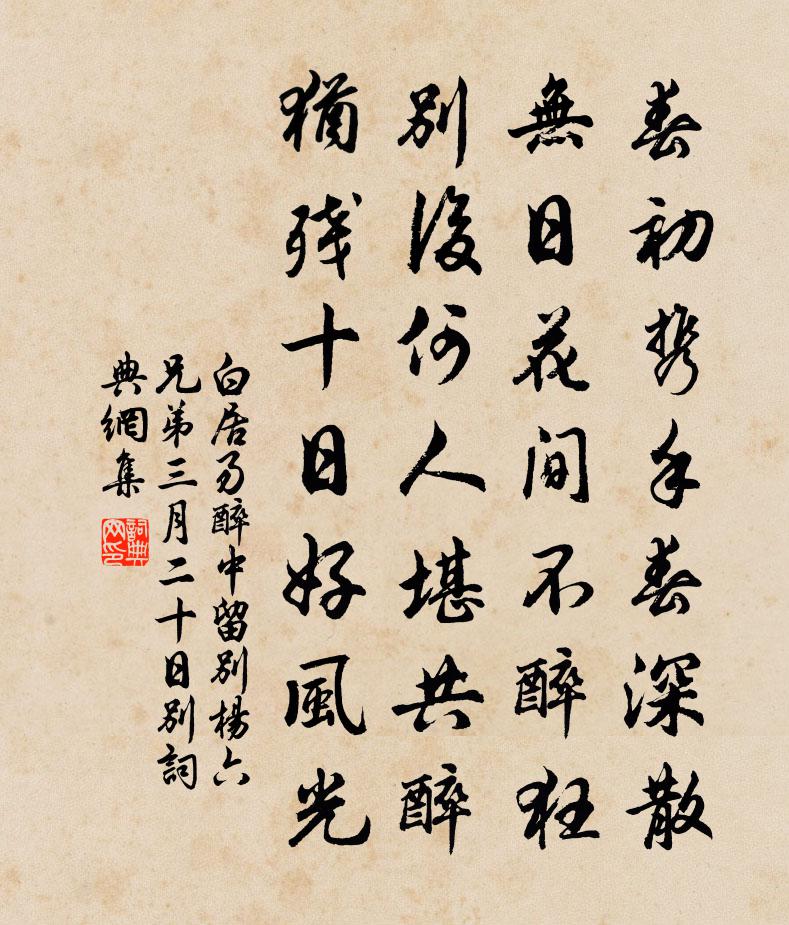 春初携手春深散
無日花間不醉狂
别後何人堪共醉
猶残十日好風光
白居易醉中留别楊六
兄弟三月二十日别詞
典網集
詞典网印